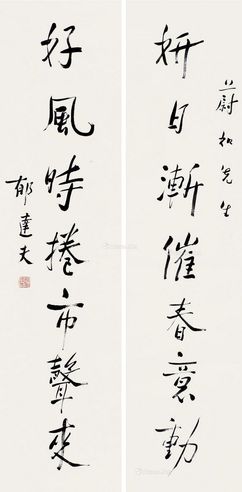 蔚如先生
妍日漸催春意動
好風時捲市聲來
郁達夫